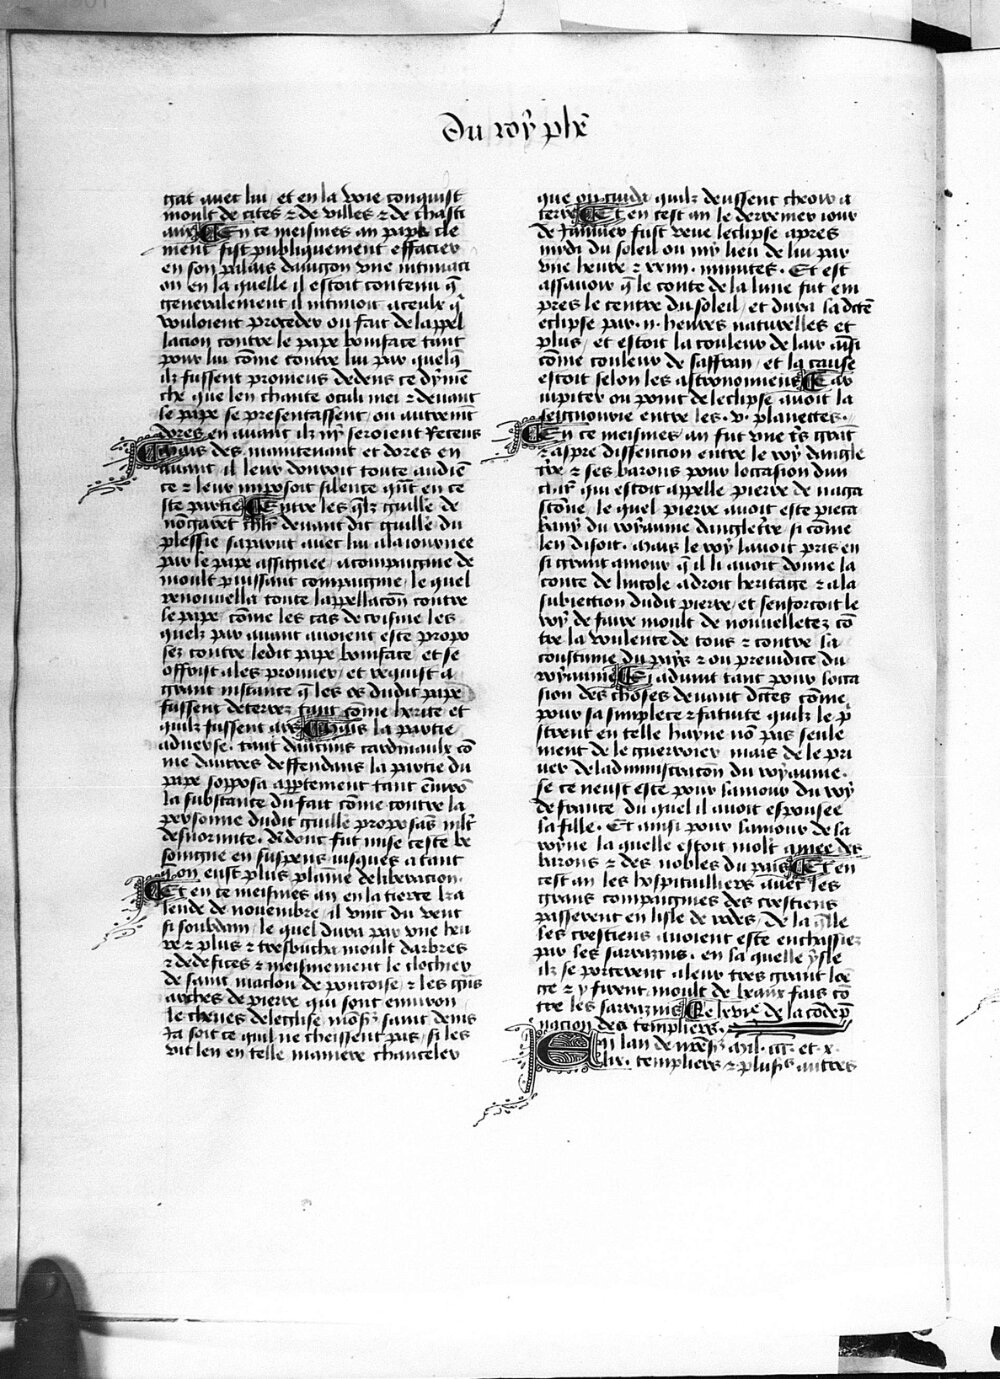 Du roy phe
gat avec lui, et en la voie conquist
moult de cites & de villes & de chasti
aux En ce meismes an pape cle
ment fist publiquement effacier
en son palais davignon une intimaci
on en la quelle il estoit contenu q̄
generalement il intimoit a ceulx q̄
vouloient proceder ou fait de lappel
lacion contre le pape boniface tant
pour lui cōme contre lui par quelq̄
ilz fussent promeus dedens ce dymen
che que len chante oculi mei & devant
le pape se presentassent, ou autremt
dores en avant ilz ny seroient receus
Mais des maintenant et dores en
avant il leur donroit toute audiē
ce & leur imposoit silence qnt en ce
ste partie Entre les qlz guille de
nōgaret chlr devant dit guille du
plessie saparut avec lui a la journee
par le pape assignee, acompaignie de
moult puissant compaignie, le quel
renouvella toute lappellacōn contre
le pape, cōme les cas de crisme les
quelz par avant avoient este propo
sez contre ledit pape boniface, et se
offroit a les prouver, et requist a
grant instance q̄ les os dudit pape
fussent deterrez tant cōme herite et
quilz fussent ars Mais la partie
adverse, tant daucuns cardinaulx cō
me dautres deffendans la partie du
pape sopposa appertement tant env̄rō
la substance du fait cōme contre la
personne dudit guille proposās mlt
desnormite. Et dont fut mise ceste be
soingne en suspens jusques a tant
q̄ on eust plus plaīne deliberacion.
Et en ce meismes an en la tierce kā
lende de novembre, il vint du vent
si soubdain, le quel dura par une heu
re & plus & tresbucha moult darbres
& dedefices & meismement le clochier
de saint maclou de pontoise, & les grās
arches de pierre qui sont environ
le cheves de leglise mōsr saint denis
Ja soit ce quil ne cheissent pas, si les
vit len en telle maniere chanceler
que on cuida quilz deussent cheoir a
terre Et en cest an le derrenier jour
de Janvier fust veue leclipse apres
midi du soleil ou my lieu de lui par
une heure & xxiiii. minutes. Et est
assavoir q̄ le conte de la lune fut em
pres le centre du soleil, et dura la dicte
eclipse par .ii. heures naturelles et
plus, et estoit la couleur de lair aīsi
cōme couleur de saffran, et la cause
estoit selon les astronomiens Car
jupiter ou point de leclipse avoit la
seignourie entre les .v. planettes.
En ce meismes an fut une trs grāt
& aspre dissencion entre le roy dangle
t̄re & ses barons pour loccasion dun
chlr qui estoit appelle pierre de gava
stone, le quel pierre avoit este pieca
bany du royaume dangleterre, si cōme
len disoit. Mais le roy lavoit pris en
si grant amour q̄ il li avoit donne la
conte de lincole a droit heritage & a la
subjection dudit pierre, et senforcoit le
roy de faire moult de nouvelletez cō
tre la voulente de tous & contre la
coustume du pays & ou prejudice du
royaume Et advint tant pour locca
sion des choses devant dictes cōme
pour sa simplece & fatuite quilz le p̄
strent en telle hayne nō pas seule
ment de le guerroier mais de le pri
ver de ladministracōn du royaume.
se ce neust este pour lamour du roy
de france, du quel il avoit espousee
sa fille. Et ainsi pour lamour de la
royne la quelle estoit molt amee des
barons & des nobles du pais Et en
cest an les hospitalliers avec les
grans compaignies des crestiens
passerent en lisle de rodes, de la qlle
les crestiens avoient este enchassiez
par les sarrazins, en la quelle ysle
ilz se porterent a leur tres grant loē
ge & y firent moult de beaux fais cō
tre les sarrazins Le lxvie de la cōdep̄
nacion des templiers.
En lan de nr̄esr mil .ccc. et x.
lix. templiers & plusrs autres